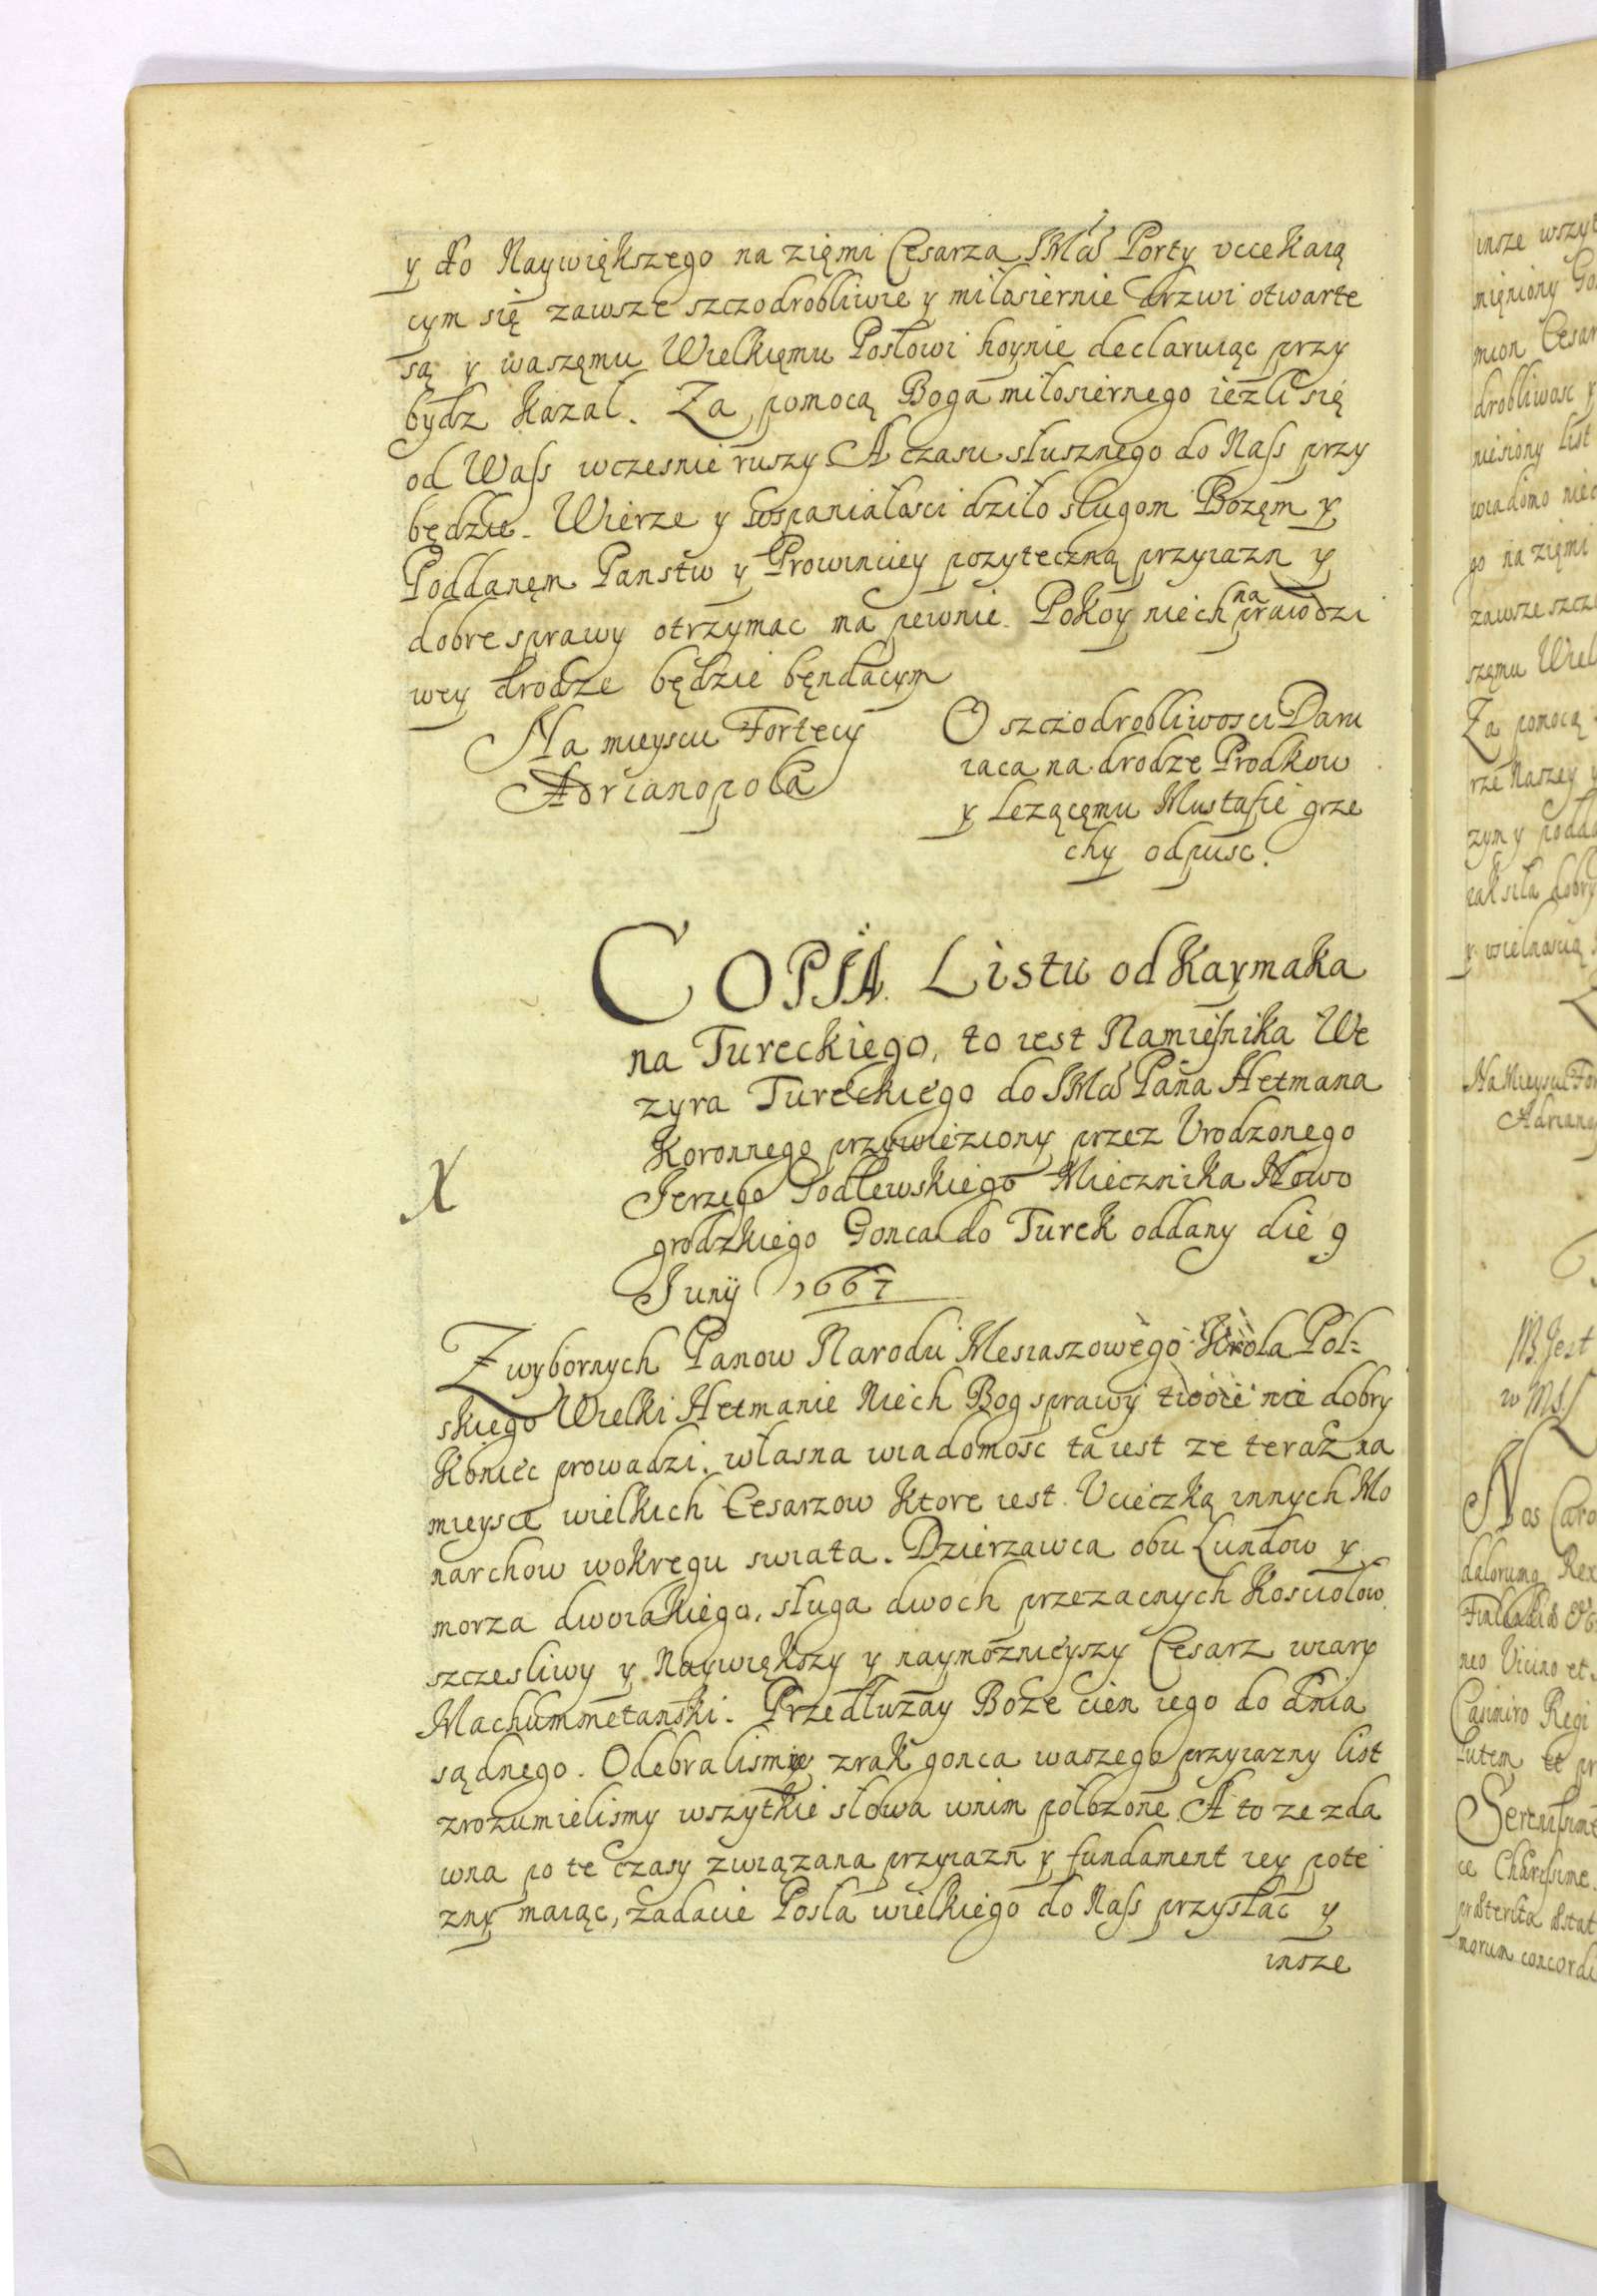 y do Naywiększego na zięmi Cesarza JMći Porty vciekaią
cym się zawsze szczodrobliwie y miłosiernie drzwi otwarte
są y waszęmu Wielkięmu Posłowi hoynie declaruiąc przy
bydz kazał. Za pomocą Boga miłosiernego ieżli się
od Wass wczesnie ruszy A czasu słusznego do Nass przy
będzie. Wierze y wspaniałosci dziło sługom Bozęm y
Poddanęm Panstw y Prowinciey pozyteczną przyiazn y
dobre sprawy otrzymac ma pewnie. Pokoy niech na prawdzi
wey drodze będzie bęndącym
Na mieyscu Fortecy
Adrianopola
O szczodrobliwosci Daru
iaca na drodze Prodkow
y Lezącęmu Mustafie grze
chy odpusc.
COPIA Listu od Kaymaka
na Tureckiego, to iest Namiesnika We
zyra Tureckiego do JMći Pana Hetmana
Koronnego przywieziony przez Vrodzonego
Jerzego Podlewskiego Miecznika Nowo
grodzkiego Gonca do Turek oddany die 9
Junij 1667
X
Z wybornych Panow Narodu Mesiaszowego Krola Pol=
skiego Wielki Hetmanie Niech Bog sprawy twoie nie dobry
Koniec prowadzi. własna wiadomosc ta iest ze teraz na
mieysce wielkich Cesarzow ktore iest Vcieczką innych Mo
narchow wokręgu swiata. Dzierzawca obu Lundow y
morza dwoiakiego, sługa dwoch przezacnych Kosciołow
szczesliwy y Naywiększy y naymoznieyszy Cesarz wiary
Machummetanski. Przedłuzay Boże cien iego do dnia
sądnego. Odebralismy zrąk gonca waszego przyiazny list
zrozumielismy wszytkie słowa wnim położone A to ze zda
wna po te czasy związana przyiazn y fundament iey pote
zny maiąc, żadacie Posła wielkiego do Nass przysłac y
insze
insze wszyt
mięniony Go
mion Cesar
drobliwosc y
niesiony list
wiadomo niec
go na zięmi
zawsze szcz
szęmu Wiel
Za pomocą
rze Naszey y
zym y podda
iak siła dobry
y wielnascią
Na Mieyscu For
Adriano
Jest
w MS
Nos Caro
dalorumq Rex
neo Vicino et
Casimiro Regi
lutem et pr
ce Charissime
præterita æstat
morum concordi